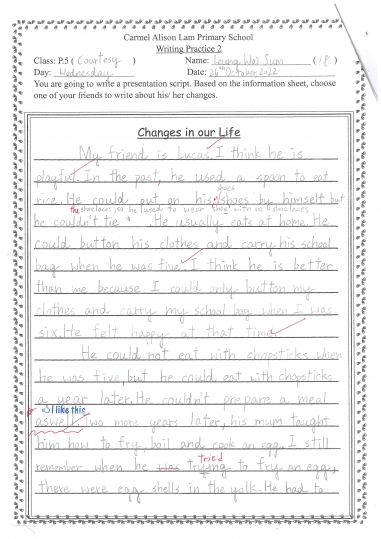 Carmel Alison Lam Primary School
Writing Practice 2
Class: P.5 ( Courtesy ) Name: Leung Wai Sum (18)
Day: Wednesday Date: 26th October 2022
You are going to write a presentation script. Based on the information sheet, choose
one of your friends to write about his/ her changes.
Changes in our Life
My friend is Lucas. I think he is
playful. In the past, he used a spoon to eat
shoes
rice. He could put on his shoes by himself but
the shoelaces, so he used to wear shoes with no shoelaces
he couldn't tie . He usually eats at home. He
could button his clothes and carry his school
bag when he was five. I think he is better
than me because I could only button my
clothes and carry my school bag when I was
six. He felt happy at that time.
He could not eat with chopsticks when
he was five, but he could eat with chopsticks
a year later. He couldn't prepare a meal
I like this
aswell. Two more years later, his mum taught
him how to fry, boil and cook an egg. I still
tried
remember when he was trying to fry an egg,
there were egg shells in the yolk. He had to